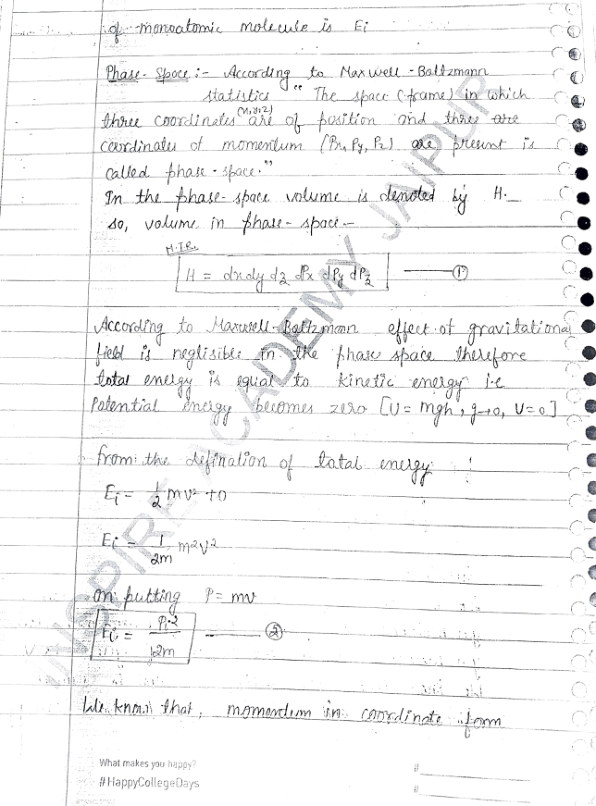 of monoatomic molecule is Ei
Phase-Space :- According to Maxwell-Boltzmann
statistics " The space (frame) in which
three coordinates (x,y,z) are of position and three are
coordinates of momentum (Px, Py, Pz) are present is
called phase-space."
In the phase-space volume is denoted by H.
so, volume in phase-space-
H = dxdy dz dPx dPy dPz —— ①
According to Maxwell-Boltzmann effect of gravitational
field is neglisible in the phase space therefore
total energy is equal to kinetic energy i.e
Potential energy becomes zero [U = mgh, g→0, U=0]
from the defination of total energy
Ei = 1/2 mv² + 0
Ei = 1/2m m²v²
on putting P = mv
Ei = Pi²/2m —— ②
We know that, momentum in coordinate form
What makes you happy?
#HappyCollegeDays
#
#
INSPIRE ACADEMY JAIPUR